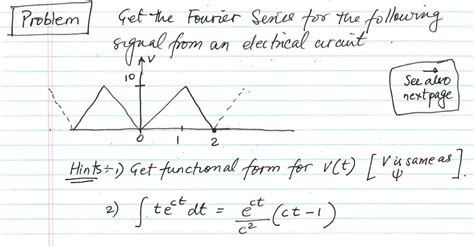 Problem
Get the Fourier Series for the following
signal from an electrical circuit.
V
10
See also
next page
0 1 2
Hints÷1) Get functional form for V(t) [V is same as
ψ
2) ∫ t e^{ct} dt = e^{ct}/c² (ct-1)